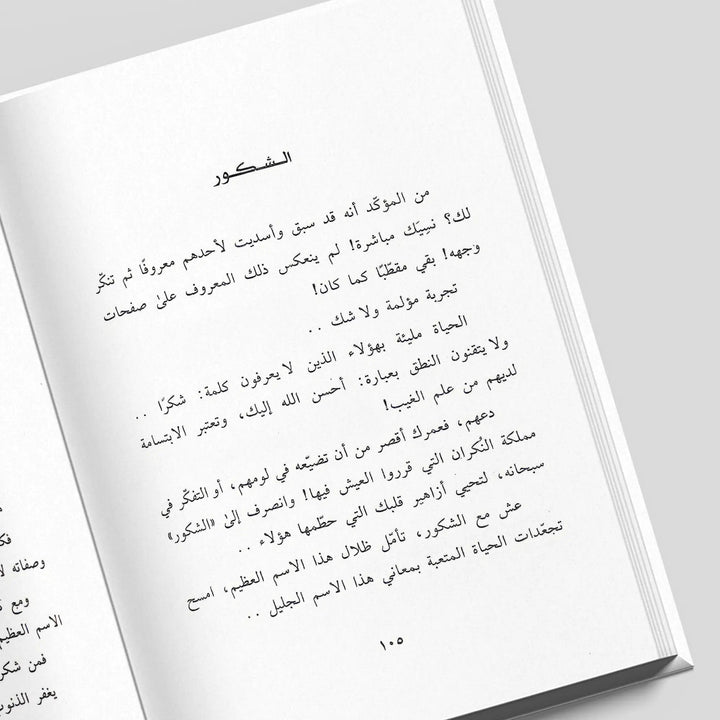 الشكور
من المؤكّد أنه قد سبق وأسديت لأحدهم معروفًا ثم تنكّر
لك؟ نسِيَك مباشرة! لم ينعكس ذلك المعروف علىٰ صفحات
وجهه! بقي مقطّبًا كما كان!
تجربة مؤلمة ولا شك ..
الحياة مليئة بهؤلاء الذين لا يعرفون كلمة: شكرًا ..
ولا يتقنون النطق بعبارة: أحسن الله إليك، وتعتبر الابتسامة
لديهم من علم الغيب!
دعهم، فعمرك أقصر من أن تضيّعه في لومهم، أو التفكّر في
مملكة النُكران التي قرروا العيش فيها! وانصرف إلىٰ «الشكور»
سبحانه، لتحيي أزاهير قلبك التي حطّمها هؤلاء ..
عش مع الشكور، تأمّل ظلال هذا الاسم العظيم، امسح
تجعّدات الحياة المتعبة بمعاني هذا الاسم الجليل ..
١٠٥
وصفاته
ومع
الاسم العظيم
فمن شكر
يغفر الذنوب